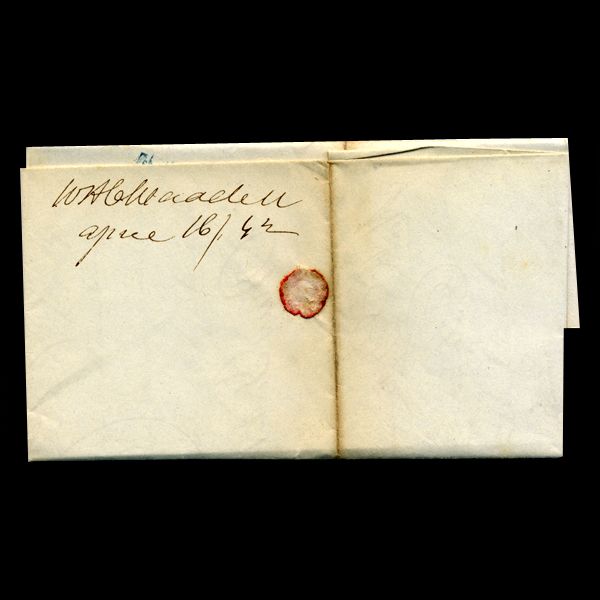 W H C Waddell
April 16/42